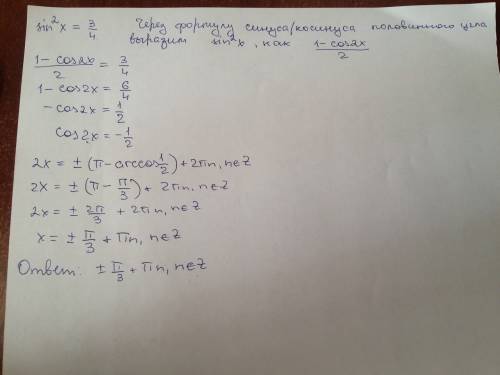 sin²x = 3/4 Через формулу синуса/косинуса половинного угла
выразим sin²x, как (1-cos2x)/2
(1-cos2x)/2 = 3/4
1-cos2x = 6/4
-cos2x = 1/2
cos2x = -1/2
2x = ± (π-arccos 1/2) + 2πn, n∈Z
2x = ± (π - π/3) + 2πn, n∈Z
2x = ± 2π/3 + 2πn, n∈Z
x = ± π/3 + πn, n∈Z
Ответ: ± π/3 + πn, n∈Z